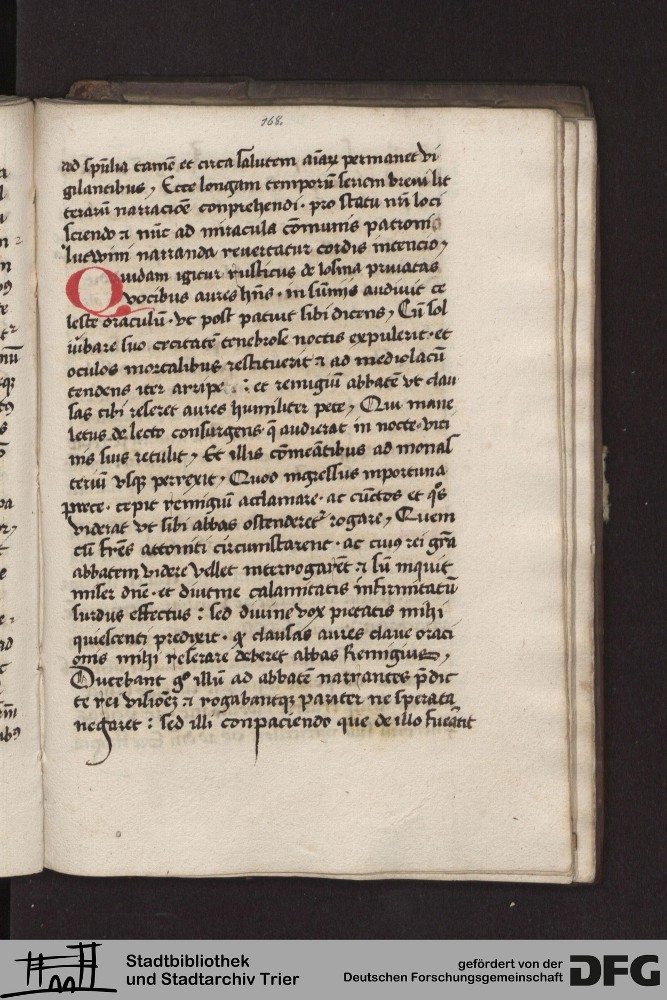 168.
ad sp̄ualia tamē et circa salutem aīaꝝ permanet vi
gilantibus, Ecce longam temporū seriem brevi lit
terarū narracōe conprehendi · pro statu nr̄i loci
sciendo ⁊ nūc ad miracula cōmunis patroni
lutwini narranda revertatur cordis intencio,
Quidam igitur rusticus de losma privatas
vocibus aures hn̄s · in sūmis audivit ce
leste oraculū · vt post patuit sibi dicens, Cū sol
iubare suo cecitatē tenebrose noctis expulerit · et
oculos mortalibus restituerit ⁊ ad mediolacū
tendens iter arripe : et remigiū abbatē vt clau
sas tibi reseret aures humiliter pete, Qui mane
letus de lecto consurgens · q̄ audierat in nocte · vici
nis suis retulit, Et illis cōmeātibus ad monas
teriū vsqꝫ perrexit, Quod ingressus inportuna
prece · cepit remigiū acclamare · ac cūctos et q̊s
viderat vt sibi abbas ostenderet᷑ rogare, Quem
cū fr̄es attoniti circumstarent · ac cuiꝰ rei gr̄a
abbatem videre vellet interrogarēt ⁊ sū inquit
miser dn̄e · et diutine calamitatis infirmitatū
surdus effectus : sed divine vox pietatis mihi
quiescenti predixit · ꝙ clausas aures clave oraci
onis mihi reserare deberet abbas Remigius,
Ducebant gͦ illū ad abbatē narrantes p̄dic
te rei visionē ⁊ rogabantqꝫ pariter ne sperata
negaret : sed illi conpaciendo que de illo fuerāt
Stadtbibliothek
und Stadtarchiv Trier
gefördert von der
Deutschen Forschungsgemeinschaft
DFG